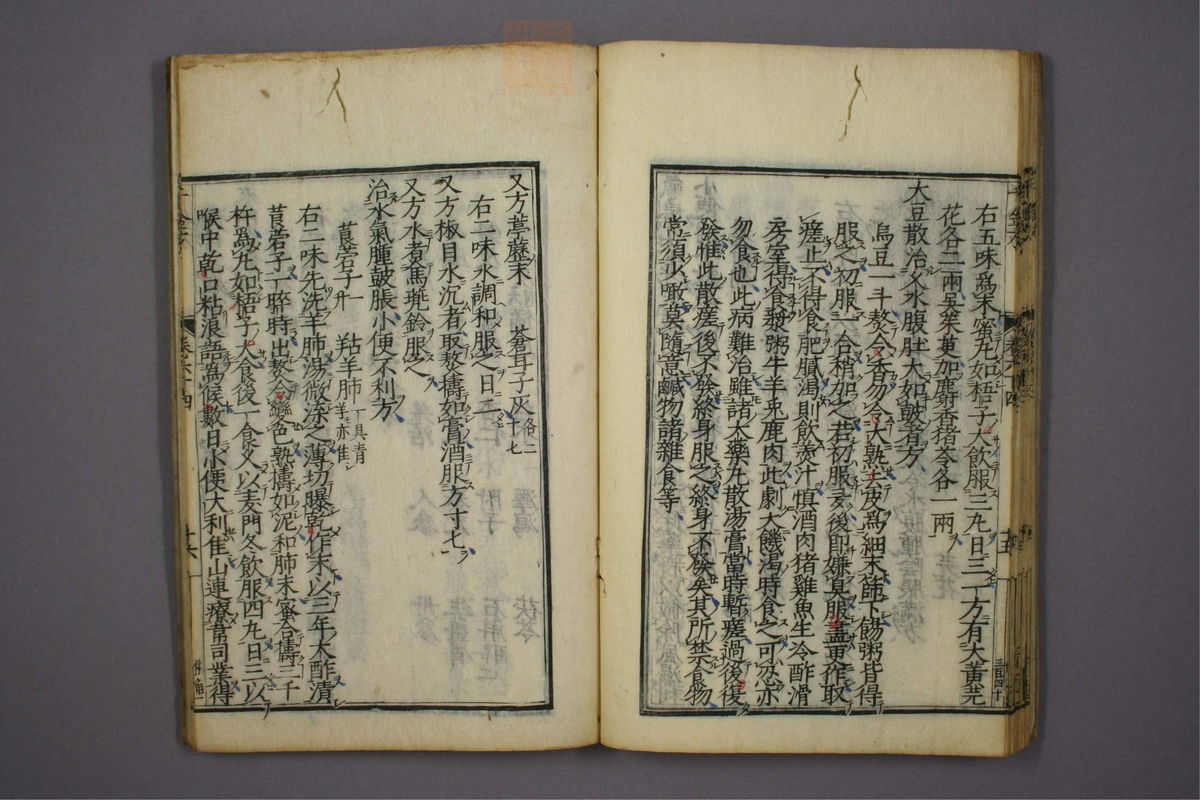 右五味爲末蜜丸如梧子大飲服三丸日三一方有大黃芫
花各二兩吳茱萸加麝香猪苓各一兩
大豆散治久水腹肚大如鼓者方
烏豆一斗熬令香勿令大熟去皮爲細末篩下餳粥皆得
服之初服一合稍加之若初服多後即嫌臭服盡更作取
瘥止不得食肥膩渴則飲羹汁慎酒肉猪雞魚生冷酢滑
房室得食漿粥牛羊兎鹿肉此劇大饑渴時食之可忍亦
勿食也此病難治雖諸大藥丸散湯膏當時暫瘥過後復
發惟此散瘥後不發終身服之終身不發矣其所禁食物
常須少噉莫隨意鹹物諸雜食等
又方葶藶末 蒼耳子灰 各二十七
右二味水調和服之日二
又方椒目水沉者取熬擣如膏酒服方寸七
又方水煮馬兠鈴服之
治水氣腫鼓脹小便不利方
莨菪子 一升 羖羊肺 一具青羊亦佳
右二味先洗羊肺湯微渫之薄切曝乾作末以三年大酢漬
莨菪子一晬時出熬令變色熟擣如泥和肺末蜜合擣三千
杵爲丸如梧子大食後一食久以麦門冬飲服四丸日三以
喉中乾口粘浪語爲候數日小便大利佳山連療韋司業得
卷六十四
十六